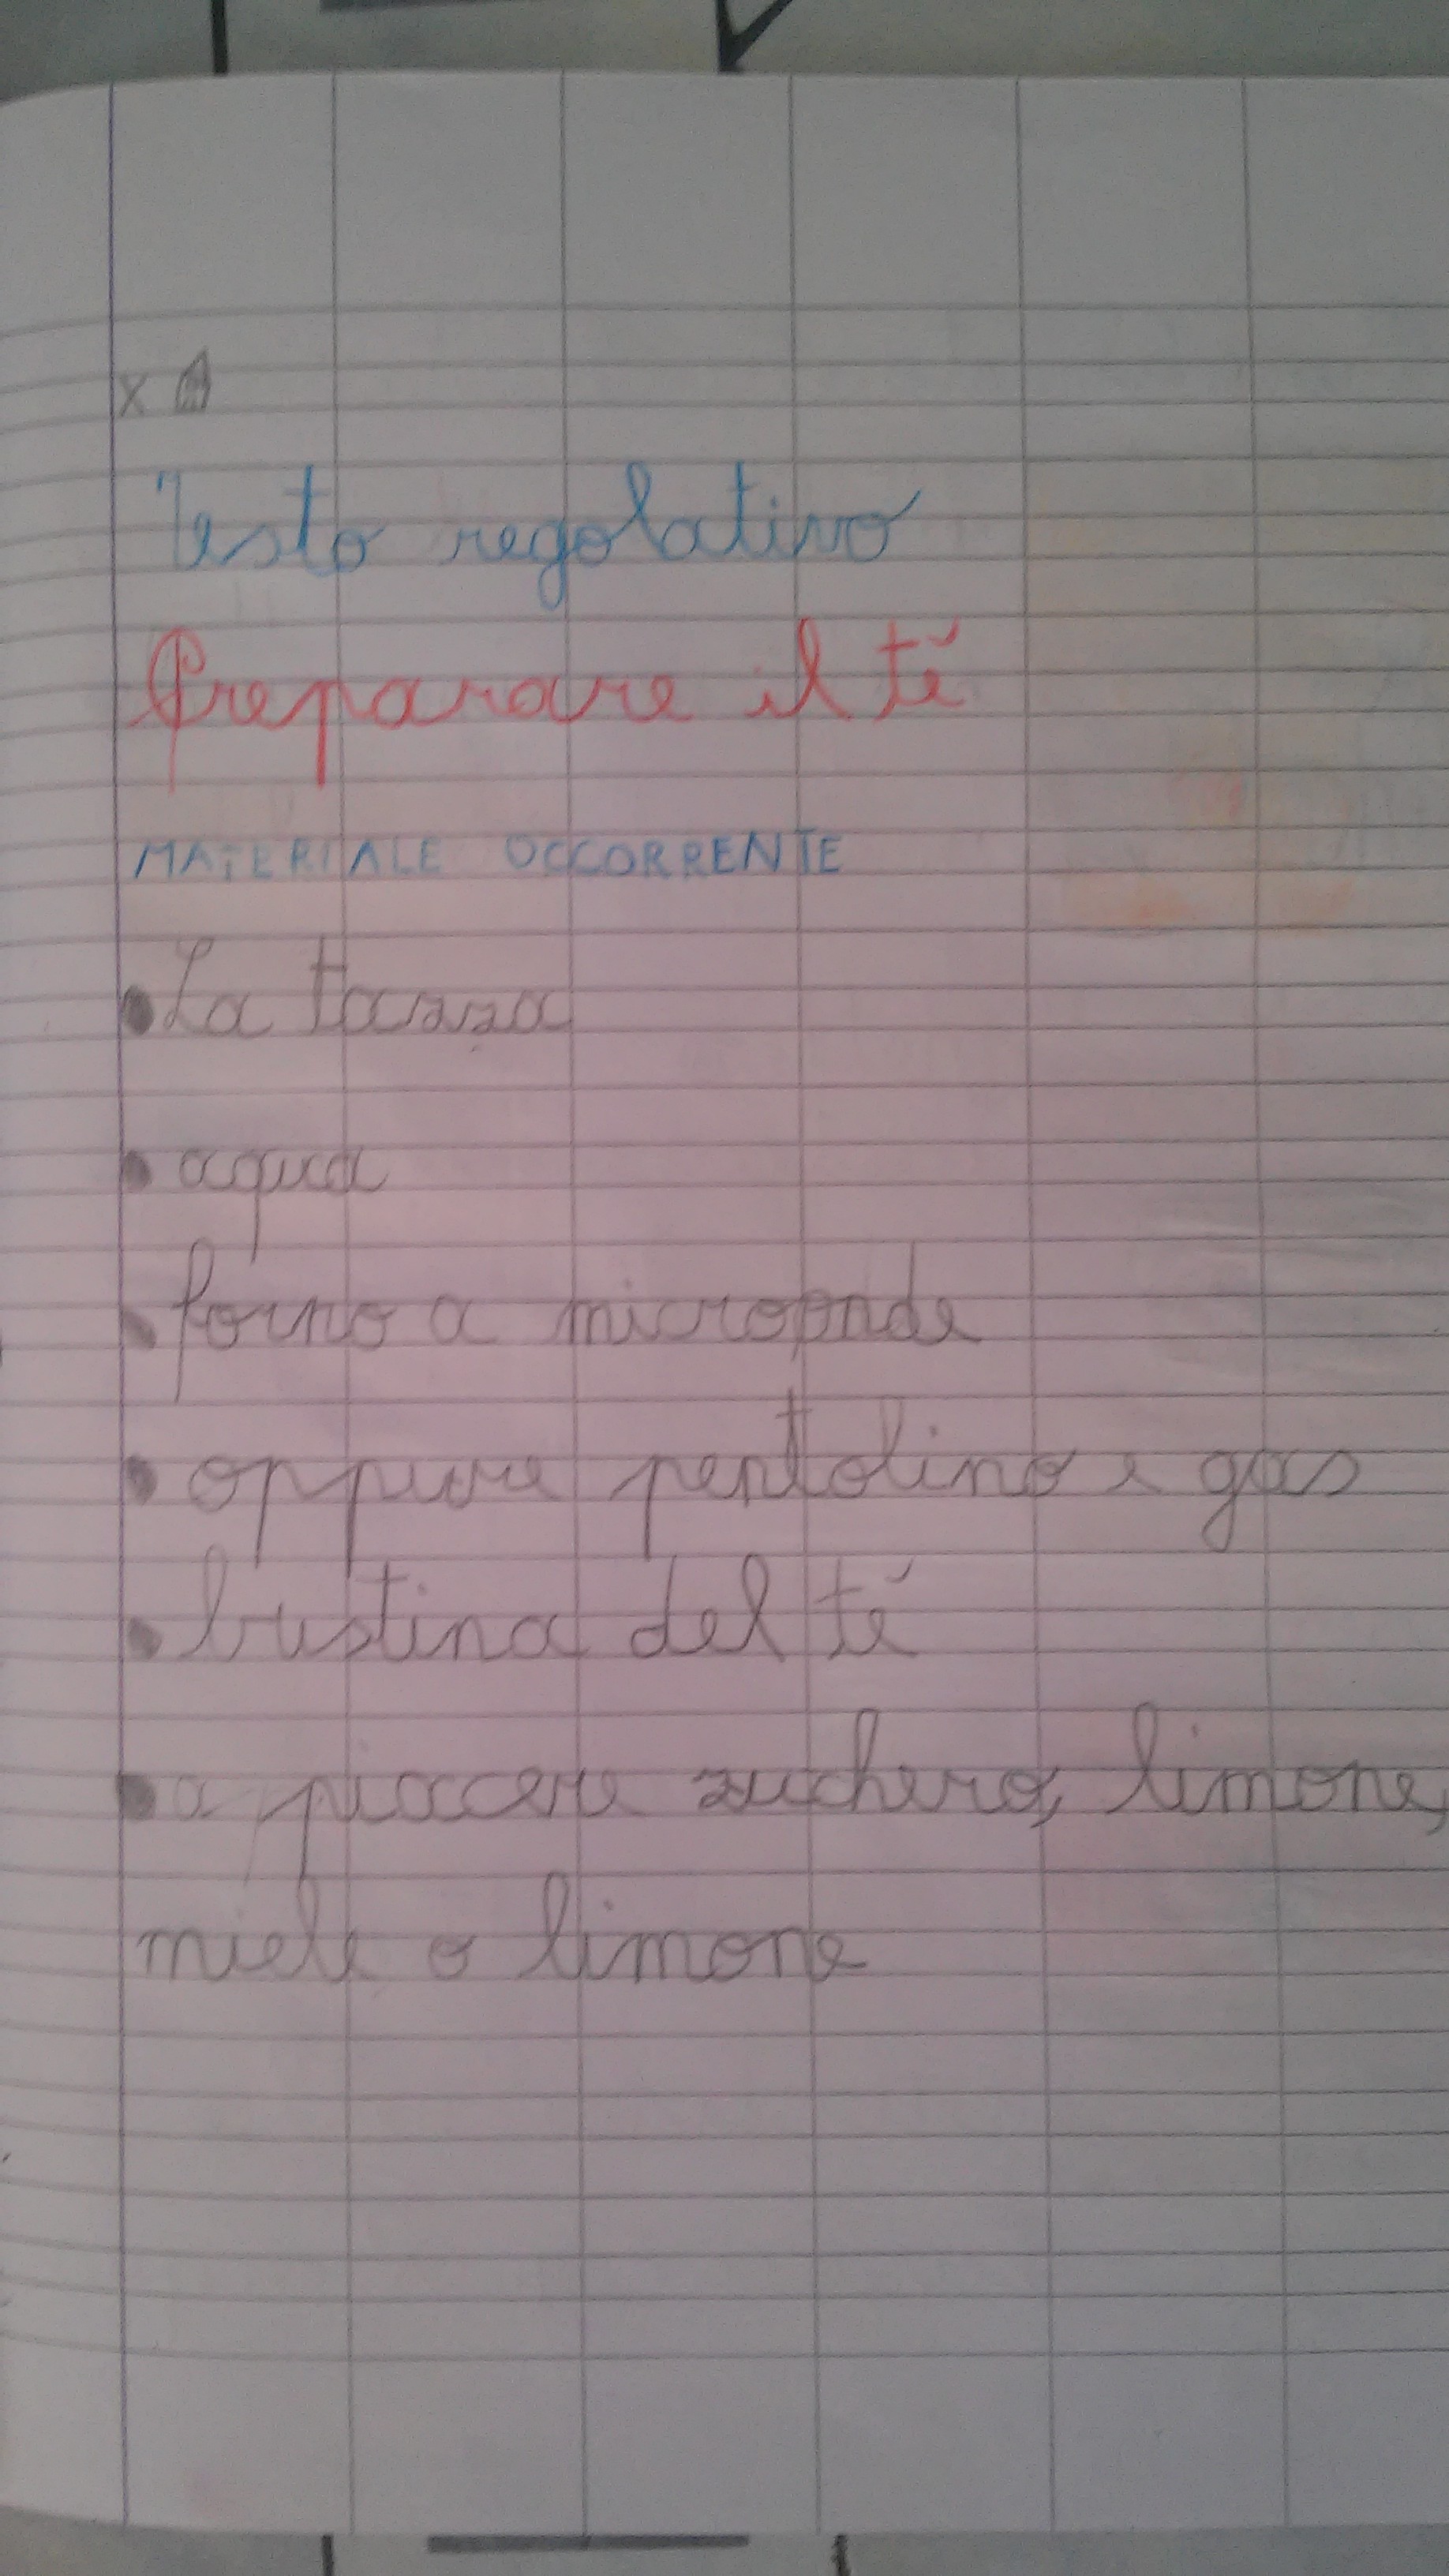 x
Testo regolativo
Preparare il té
MATERIALE OCCORRENTE
• La tazza
• aqua
• forno a microonde
• oppure pentolino e gas
• bustina del té
• a piacere zuchero, limone,
miele o limone